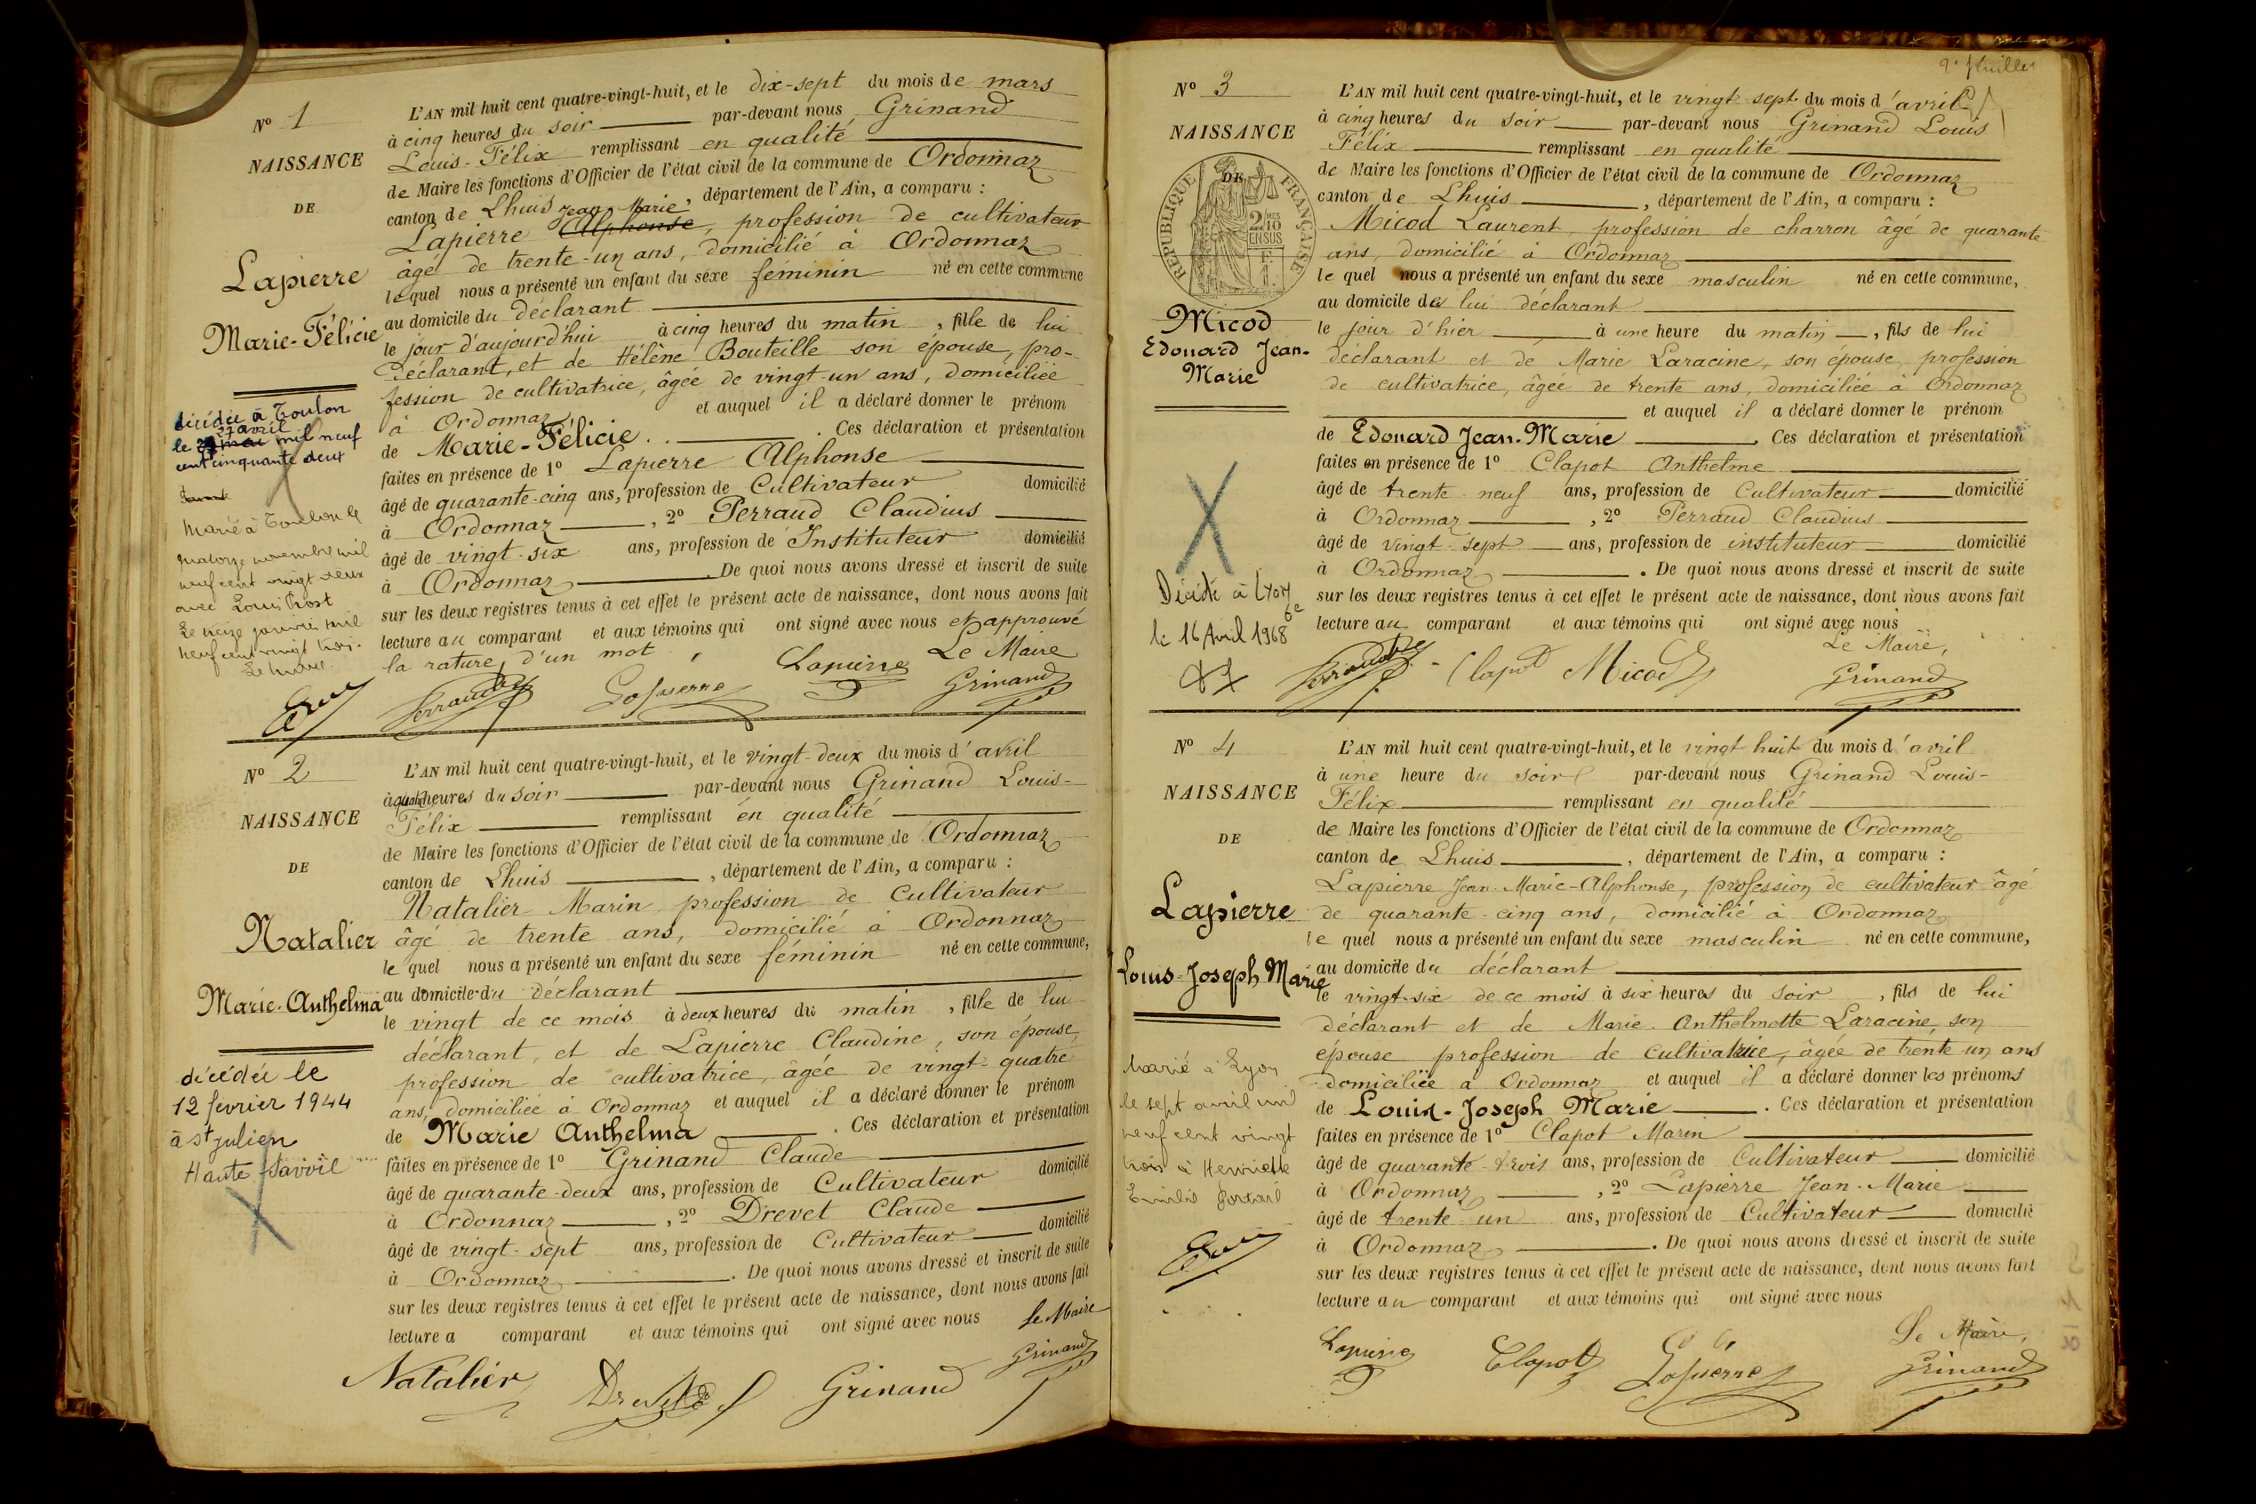 Nº 1
NAISSANCE
DE
Lapierre
Marie-Félicie
décédée à Toulon
27 avril
le mai mil neuf
cent cinquante deux
Marié à Toulon le
quatorze novembre mil
neuf cent vingt deux
avec Louis Prost
Le treize janvier mil
neuf cent vingt trois.
Le Maire
L'AN mil huit cent quatre-vingt-huit, et le dix-sept du mois de mars
à cinq heures du soir par-devant nous Grinand
Louis-Félix remplissant en qualité
de Maire les fonctions d'Officier de l'état civil de la commune de Ordonnaz
canton de Lhuis, département de l'Ain, a comparu :
Jean-Marie
Lapierre Alphonse, profession de cultivateur
âgé de trente-un ans, domicilié à Ordonnaz
lequel nous a présenté un enfant du sexe féminin né en cette commune
au domicile du déclarant
le jour d'aujourd'hui à cinq heures du matin, fille de lui
déclarant, et de Hélène Bouteille son épouse, pro-
fession de cultivatrice, âgée de vingt-un ans, domiciliée
à Ordonnaz et auquel il a déclaré donner le prénom
de Marie-Félicie. Ces déclaration et présentation
faites en présence de 1º Lapierre Alphonse
âgé de quarante-cinq ans, profession de Cultivateur domicilié
à Ordonnaz, 2º Perraud Claudius
âgé de vingt-six ans, profession de Instituteur domicilié
à Ordonnaz. De quoi nous avons dressé et inscrit de suite
sur les deux registres tenus à cet effet le présent acte de naissance, dont nous avons fait
lecture au comparant et aux témoins qui ont signé avec nous et approuvé
la rature d'un mot. Le Maire
Perraud Lapierre Lapierre Grinand
Nº 2
NAISSANCE
DE
Natalier
Marie-Anthelma
décédée le
12 fevrier 1944
à St Julien
Haute-Savoie
L'AN mil huit cent quatre-vingt-huit, et le vingt-deux du mois d'avril
à quatre heures du soir par-devant nous Grinand Louis-
Félix remplissant en qualité
de Maire les fonctions d'Officier de l'état civil de la commune de Ordonnaz
canton de Lhuis, département de l'Ain, a comparu :
Natalier Marin profession de Cultivateur
âgé de trente ans, domicilié à Ordonnaz
le quel nous a présenté un enfant du sexe féminin né en cette commune,
au domicile du déclarant
le vingt de ce mois à deux heures du matin, fille de lui
déclarant, et de Lapierre Claudine, son épouse,
profession de cultivatrice, âgée de vingt-quatre
ans, domiciliée à Ordonnaz et auquel il a déclaré donner le prénom
de Marie Anthelma. Ces déclaration et présentation
faites en présence de 1º Grinand Claude
âgé de quarante-deux ans, profession de Cultivateur domicilié
à Ordonnaz, 2º Drevet Claude
âgé de vingt-sept ans, profession de Cultivateur domicilié
à Ordonnaz. De quoi nous avons dressé et inscrit de suite
sur les deux registres tenus à cet effet le présent acte de naissance, dont nous avons fait
lecture a comparant et aux témoins qui ont signé avec nous Le Maire
Natalier Drevet Grinand Grinand
2e feuillet
Nº 3
NAISSANCE
DE
RÉPUBLIQUE FRANÇAISE
2/10
EN SUS
Micod
Edouard Jean-
Marie
Décédé à Lyon
6e
le 16 Avril 1968
L'AN mil huit cent quatre-vingt-huit, et le vingt-sept du mois d'avril
à cinq heures du soir par-devant nous Grinand Louis
Félix remplissant en qualité
de Maire les fonctions d'Officier de l'état civil de la commune de Ordonnaz
canton de Lhuis, département de l'Ain, a comparu :
Micod Laurent, profession de charron âgé de quarante
ans, domicilié à Ordonnaz
le quel nous a présenté un enfant du sexe masculin né en cette commune,
au domicile de lui déclarant
le jour d'hier à une heure du matin, fils de lui
déclarant et de Marie Laracine, son épouse, profession
de cultivatrice, âgée de trente ans, domiciliée à Ordonnaz
et auquel il a déclaré donner le prénom
de Edouard Jean-Marie. Ces déclaration et présentation
faites en présence de 1º Clapot Anthelme
âgé de trente-neuf ans, profession de Cultivateur domicilié
à Ordonnaz, 2º Perraud Claudius
âgé de vingt-sept ans, profession de instituteur domicilié
à Ordonnaz. De quoi nous avons dressé et inscrit de suite
sur les deux registres tenus à cet effet le présent acte de naissance, dont nous avons fait
lecture au comparant et aux témoins qui ont signé avec nous
Le Maire,
Perraud Clapot Micod Grinand
Nº 4
NAISSANCE
DE
Lapierre
Louis-Joseph Marie
Marié à Lyon
le sept avril mil
neuf cent vingt
trois à Henriette
L'AN mil huit cent quatre-vingt-huit, et le vingt huit du mois d'avril
à une heure du soir par-devant nous Grinand Louis-
Félix remplissant en qualité
de Maire les fonctions d'Officier de l'état civil de la commune de Ordonnaz
canton de Lhuis, département de l'Ain, a comparu :
Lapierre Jean-Marie-Alphonse, profession de cultivateur âgé
de quarante-cinq ans, domicilié à Ordonnaz
le quel nous a présenté un enfant du sexe masculin né en cette commune,
au domicile du déclarant
le vingt-six de ce mois à six heures du soir, fils de lui
déclarant et de Marie Anthelmette Laracine, son
épouse profession de cultivatrice, âgée de trente-un ans
domiciliée à Ordonnaz et auquel il a déclaré donner les prénoms
de Louis-Joseph Marie. Ces déclaration et présentation
faites en présence de 1º Clapot Marin
âgé de quarante-trois ans, profession de Cultivateur domicilié
à Ordonnaz, 2º Lapierre Jean-Marie
âgé de trente-un ans, profession de Cultivateur domicilié
à Ordonnaz. De quoi nous avons dressé et inscrit de suite
sur les deux registres tenus à cet effet le présent acte de naissance, dont nous avons fait
lecture au comparant et aux témoins qui ont signé avec nous
Le Maire,
Lapierre Clapot Lapierre Grinand